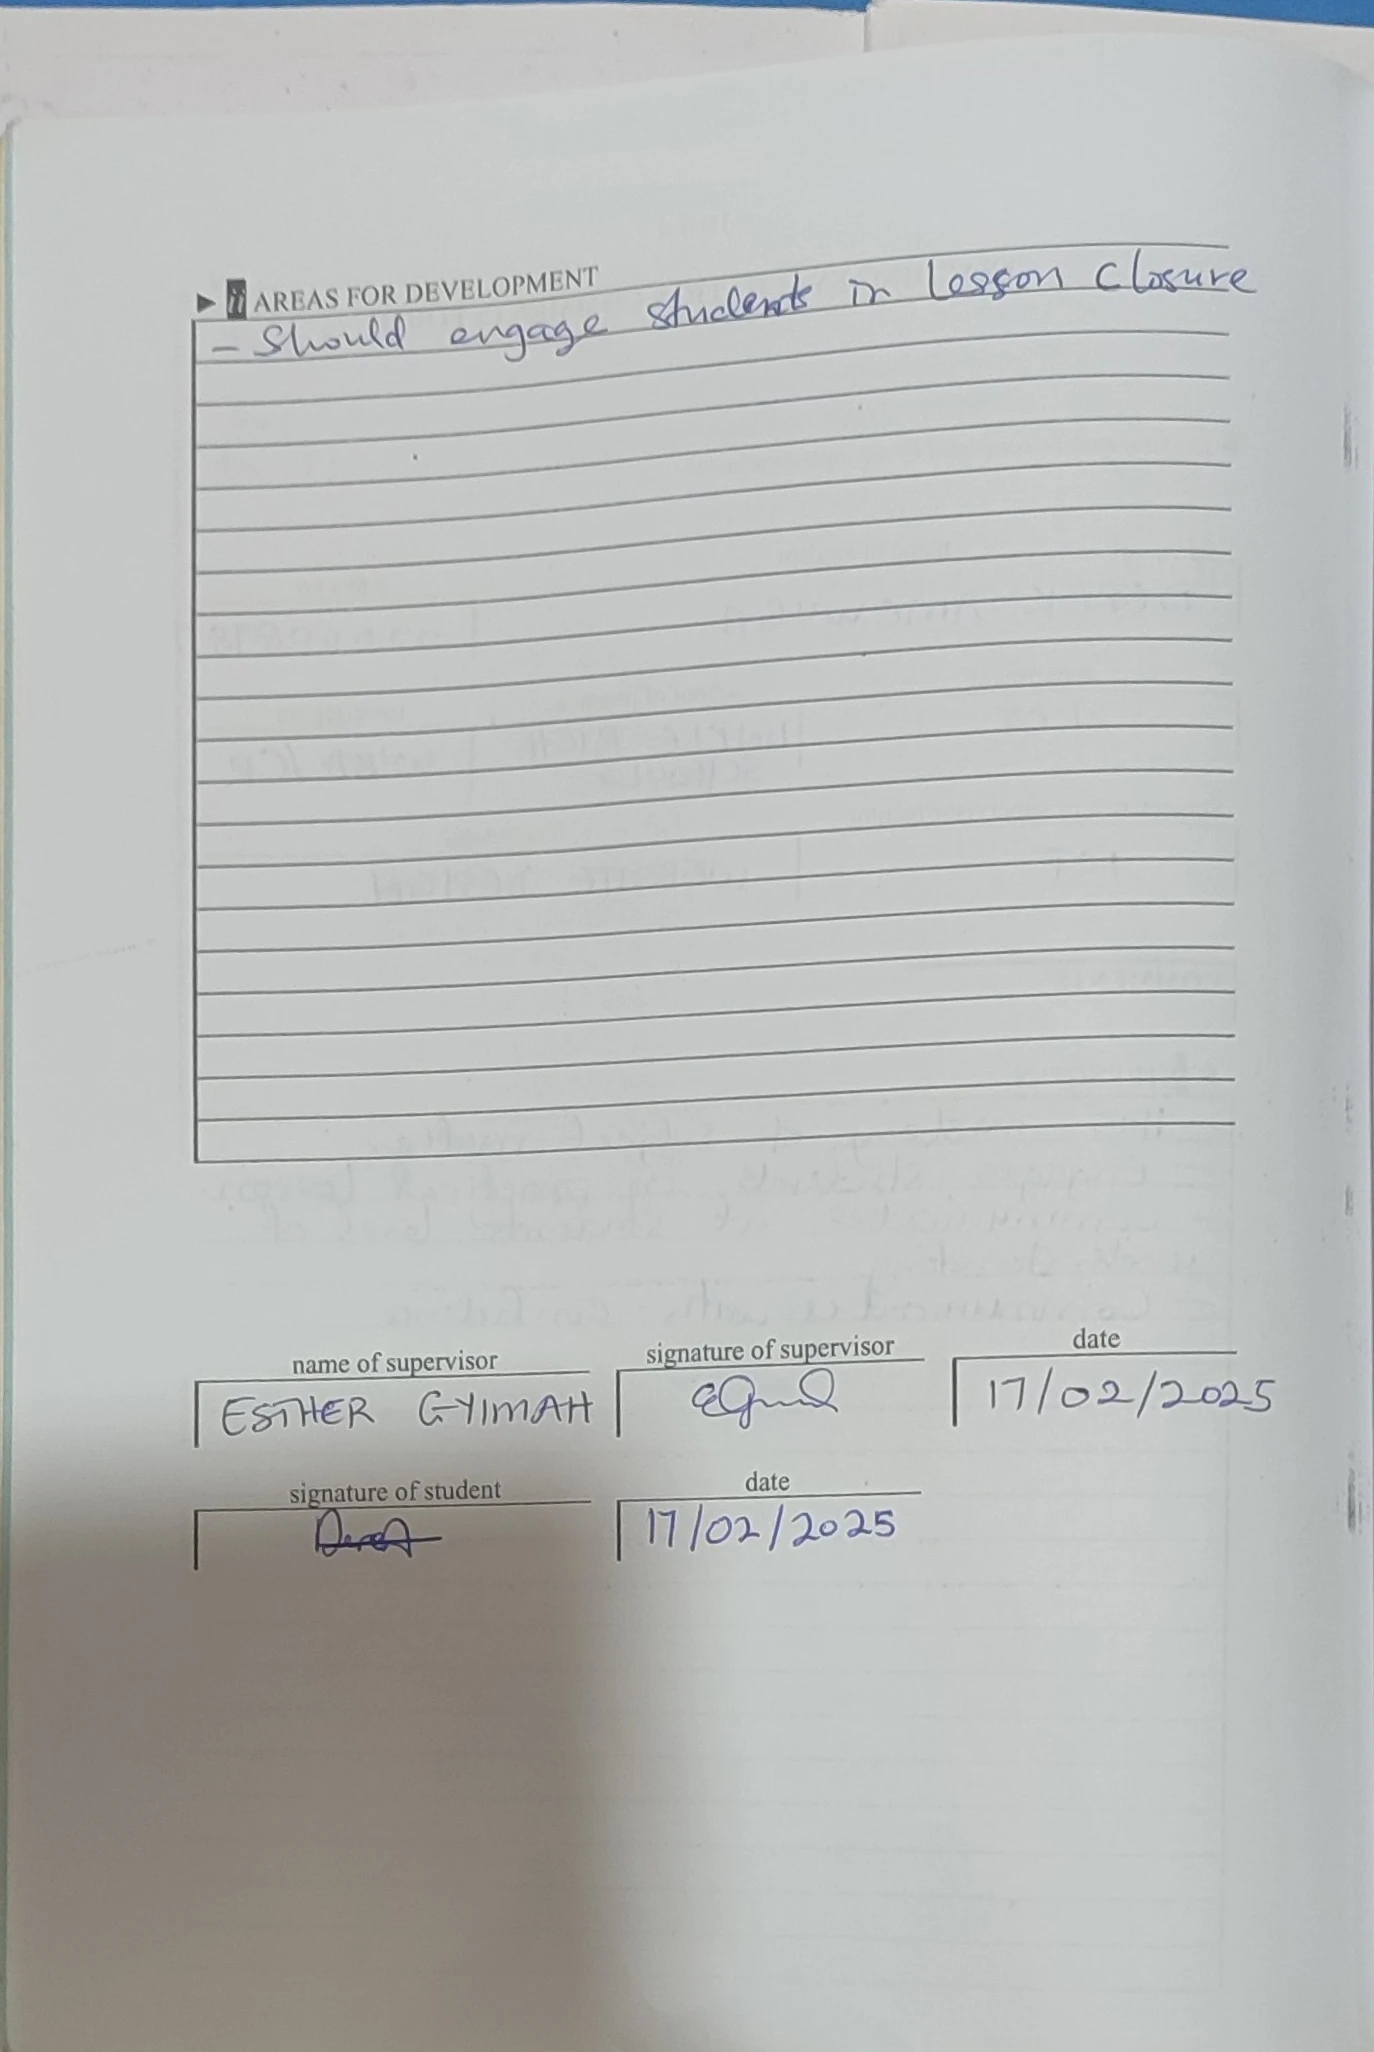 ► ii AREAS FOR DEVELOPMENT
- Should engage students in lesson closure
name of supervisor
signature of supervisor
date
ESTHER GYIMAH
17/02/2025
signature of student
date
17/02/2025